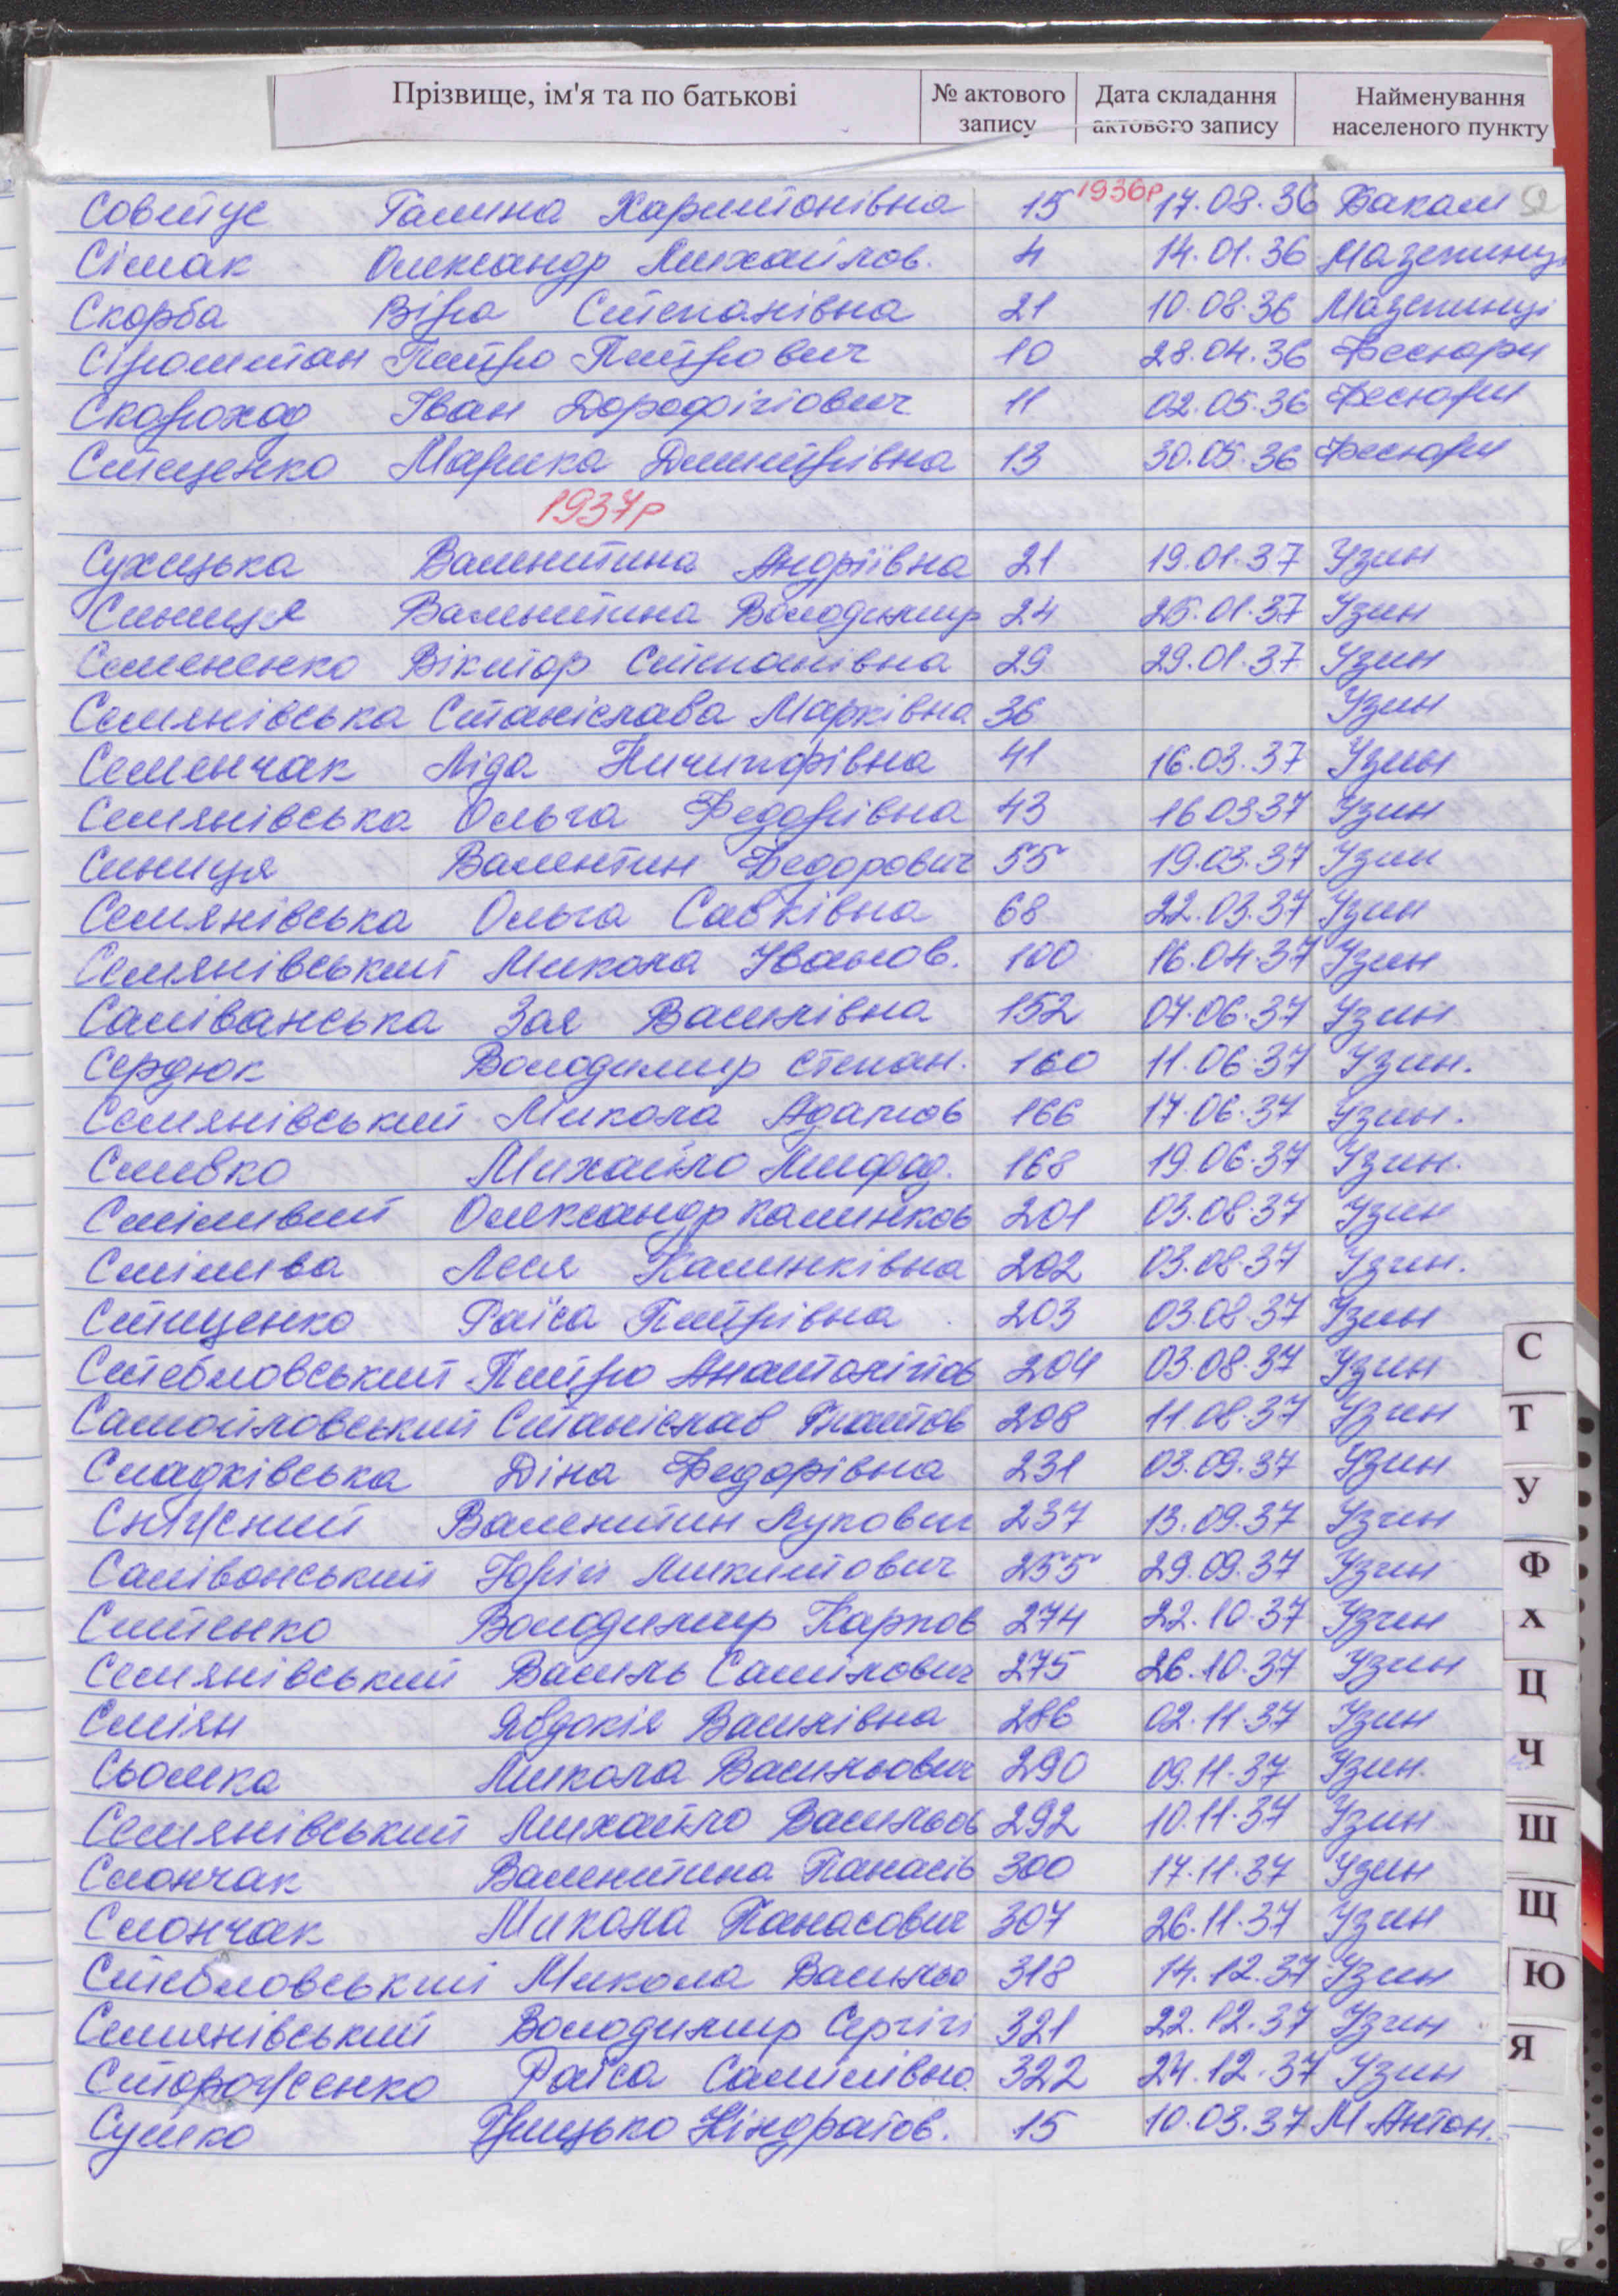 Прізвище, ім'я та по батькові № актового запису Дата складання актового запису Найменування населеного пункту
1936р
Совтус Галина Харитонівна 15 17.08.36 Бакали
Сімак Олександр Михайлов. 4 14.01.36 Мазепинці
Скорба Віра Степанівна 21 10.08.36 Мазепинці
Стромтан Петро Петрович 10 28.04.36 Фесюри
Скороход Іван Дорофійович 11 02.05.36 Фесюри
Стеценко Марика Дмитрівна 13 30.05.36 Фесюри
1937р
Сухицька Валентина Андріївна 21 19.01.37 Узин
Синиця Валентина Володимир 24 25.01.37 Узин
Семененко Віктор Степанівна 29 29.01.37 Узин
Семянівська Станіслава Марківна 36 Узин
Семенчак Ліда Ничипорівна 41 16.03.37 Узин
Семянівська Ольга Федорівна 43 16.03.37 Узин
Синиця Валентин Федорович 55 19.03.37 Узин
Семянівська Ольга Савківна 68 22.03.37 Узин
Семянівський Микола Іванов. 100 16.04.37 Узин
Саліванська Зоя Василівна 152 07.06.37 Узин
Сердюк Володимир Степан. 160 11.06.37 Узин.
Семянівський Микола Адамов 166 17.06.37 Узин.
Сливко Михайло Мефод. 168 19.06.37 Узин.
Сміливий Олександр Калинков 201 03.08.37 Узин
Смілива Леся Калинківна 202 03.08.37 Узин.
Стищенко Раїса Петрівна 203 03.08.37 Узин
Стебловський Петро Анатолійов 204 03.08.37 Узин
Самойловський Станіслав Платов 208 11.08.37 Узин
Сладківська Діна Федорівна 231 03.09.37 Узин
Сніжний Валентин Лукович 237 13.09.37 Узин
Салівонський Юрій Микитович 255 29.09.37 Узин
Ситенко Володимир Карпов 274 22.10.37 Узин
Семянівський Василь Самійлович 275 26.10.37 Узин
Сміян Явдокія Василівна 286 02.11.37 Узин
Сьомка Микола Васильович 290 09.11.37 Узин.
Семянівський Михайло Васильов 292 10.11.37 Узин
Слончак Валентина Панасів 300 17.11.37 Узин
Слончак Микола Панасович 307 26.11.37 Узин
Стебловський Микола Васильо 318 14.12.37 Узин
Семянівський Володимир Сергійі 321 22.12.37 Узин
Стороженко Раїса Самійлівна 322 24.12.37 Узин
Сушко Грицько Кіндратов. 15 10.03.37 М Антон.
С
Т
У
Ф
Х
Ц
Ч
Ш
Щ
Ю
Я